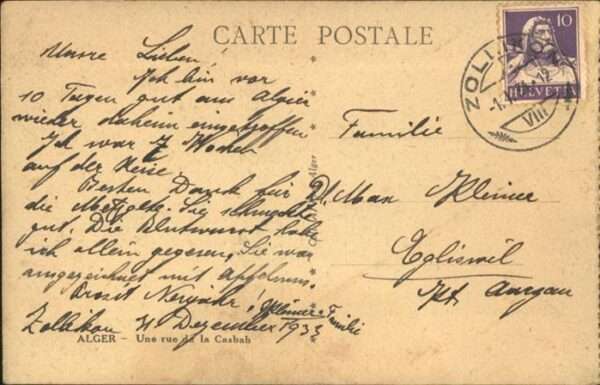 CARTE POSTALE
Unsre Lieben!
Ich bin vor
10 Tagen gut aus Algier
wieder daheim eingetroffen
Ich war 7 Wochen
auf der Reise
Besten Dank für
die Metzgete. Sie schmeckte
gut. Die Blutwurst habe
ich allein gegessen. Sie war
ausgezeichnet mit Apfelmus.
Prosit Neujahr!
Familie
Zollikon 31 Dezember 1933
ALGER — Une rue de la Casbah
10
HELVETIA
ZOLLIKON
VIII
Familie
Dr. Max Kleiner
Egliswil
Kt. Aargau